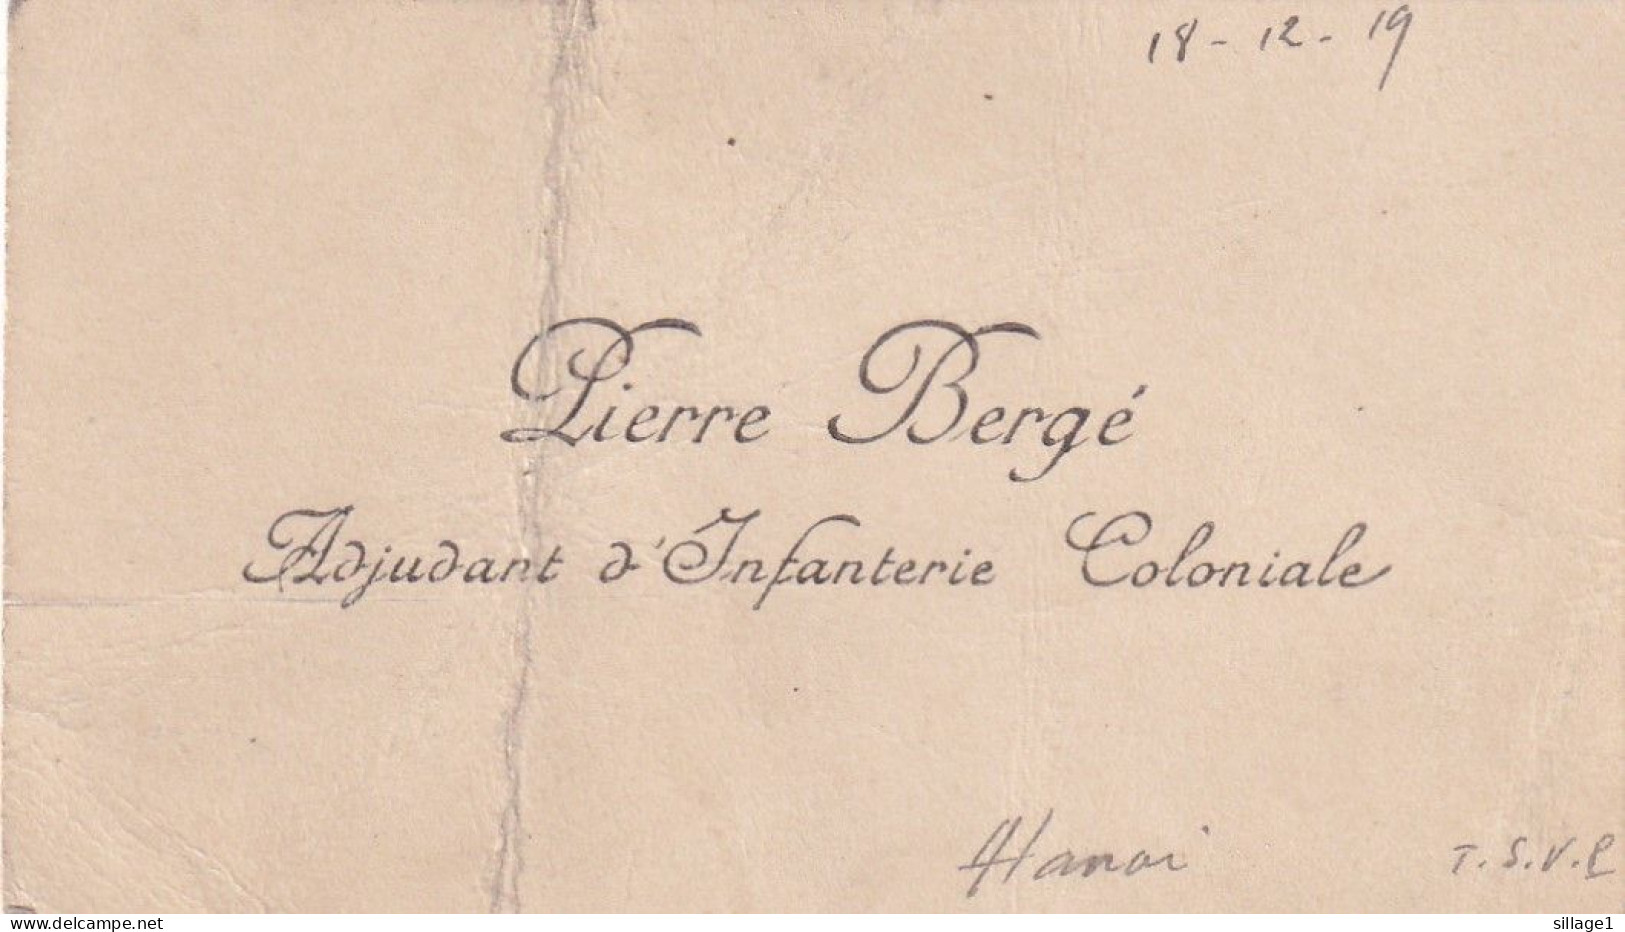 18-12-19
Pierre Bergé
Adjudant d'Infanterie Coloniale
Hanoi
T.S.V.P
www.delcampe.net
sillage1